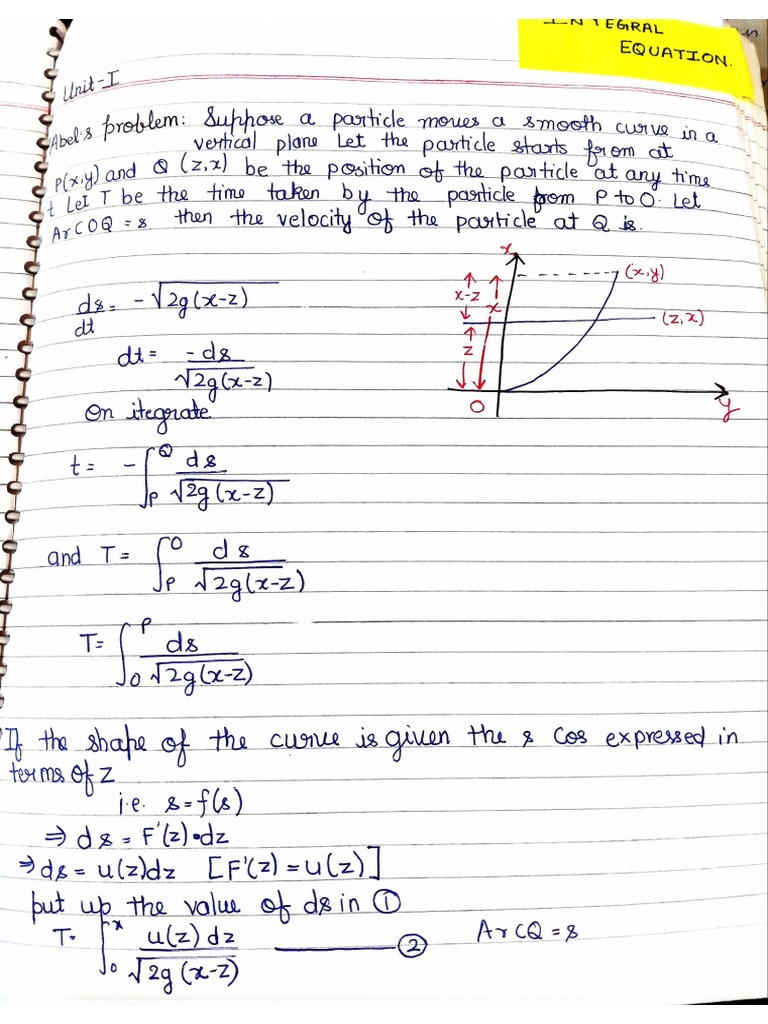 INTEGRAL
EQUATION.
Unit-I
Abel's problem: Suppose a particle moves a smooth curve in a
vertical plane Let the particle starts from at
P(x,y) and Q (z,x) be the position of the particle at any time
t Let T be the time taken by the particle from P to O. Let
ArCOQ = s then the velocity of the particle at Q is.
x
(x,y)
x-z
x
(z,x)
z
O
y
ds/dt = -√2g(x-z)
dt = -ds/√2g(x-z)
On itegrate
t = -∫_P^Q ds/√2g(x-z)
and T = ∫_P^O ds/√2g(x-z)
T= ∫_O^P ds/√2g(x-z)
If the shape of the curve is given the s cos expressed in
terms of z
i.e. s=f(s)
⇒ ds = F'(z)•dz
⇒ds = u(z)dz [F'(z) = u(z)]
put up the value of ds in ①
T= ∫_0^x u(z) dz/√2g(x-z) ——— ② ArCQ = s